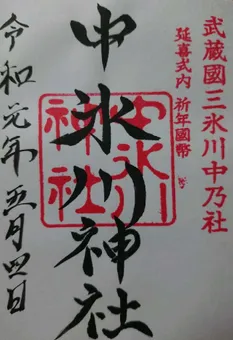 武蔵國三氷川中乃社
延喜式内 祈年國幣
中氷川神社
中氷川神社
令和元年五月四日